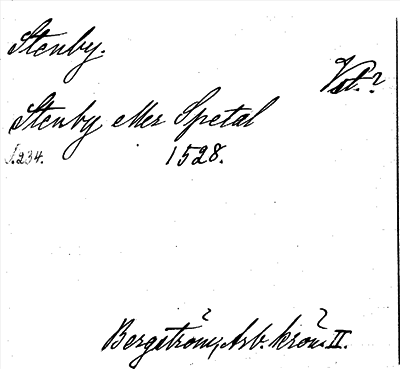 Stenby.
Vst.?
Stenby eller Spetal
S. 234. 1528.
Bergström, Arb. krön. II.